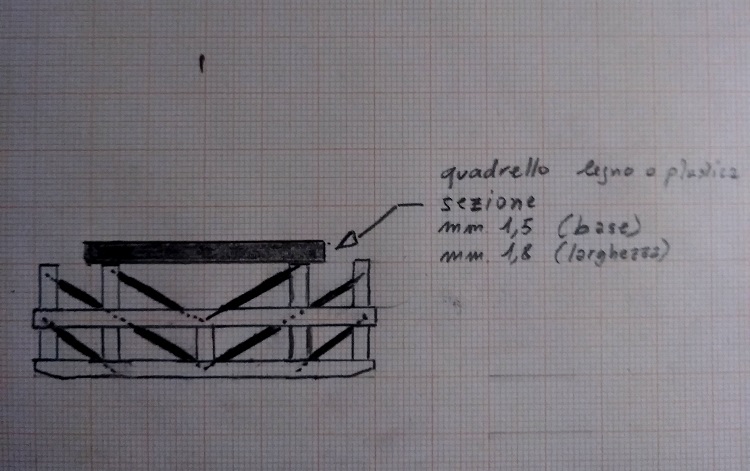 quadrello legno o plastica
sezione
mm. 1,5 (base)
mm. 1,8 (larghezza)